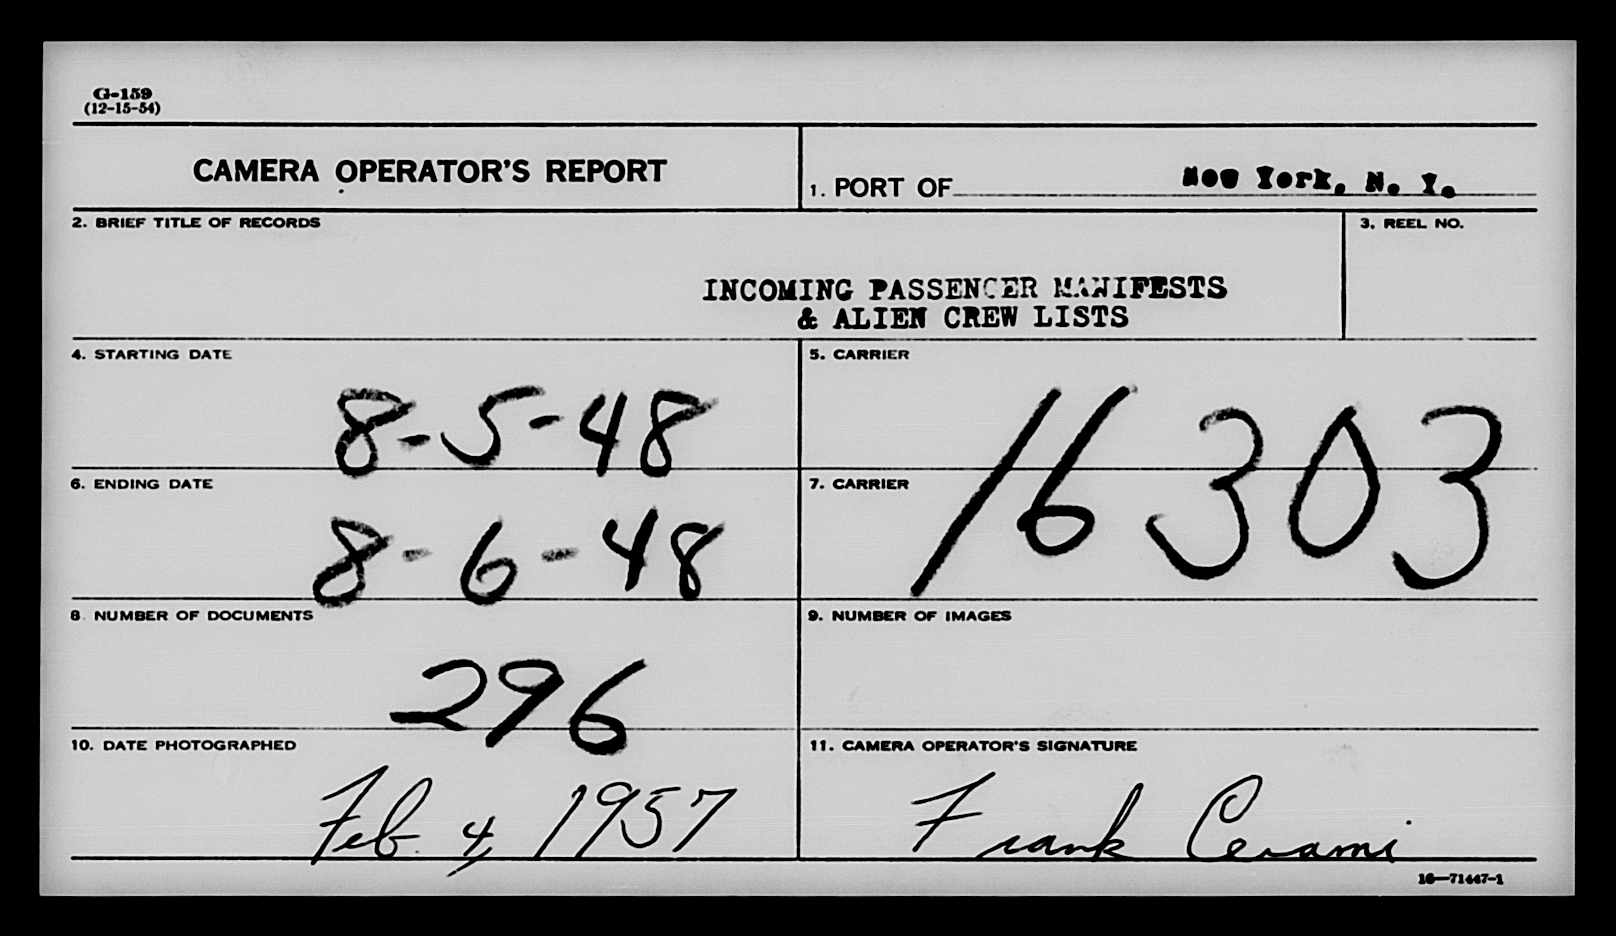 G-159
(12-15-54)
CAMERA OPERATOR'S REPORT
1. PORT OF New York, N. Y.
2. BRIEF TITLE OF RECORDS
3. REEL NO.
INCOMING PASSENGER MANIFESTS
& ALIEN CREW LISTS
4. STARTING DATE
8-5-48
5. CARRIER
16303
6. ENDING DATE
8-6-48
7. CARRIER
8. NUMBER OF DOCUMENTS
296
9. NUMBER OF IMAGES
10. DATE PHOTOGRAPHED
Feb. 4, 1957
11. CAMERA OPERATOR'S SIGNATURE
Frank Cerami
16—71447-1